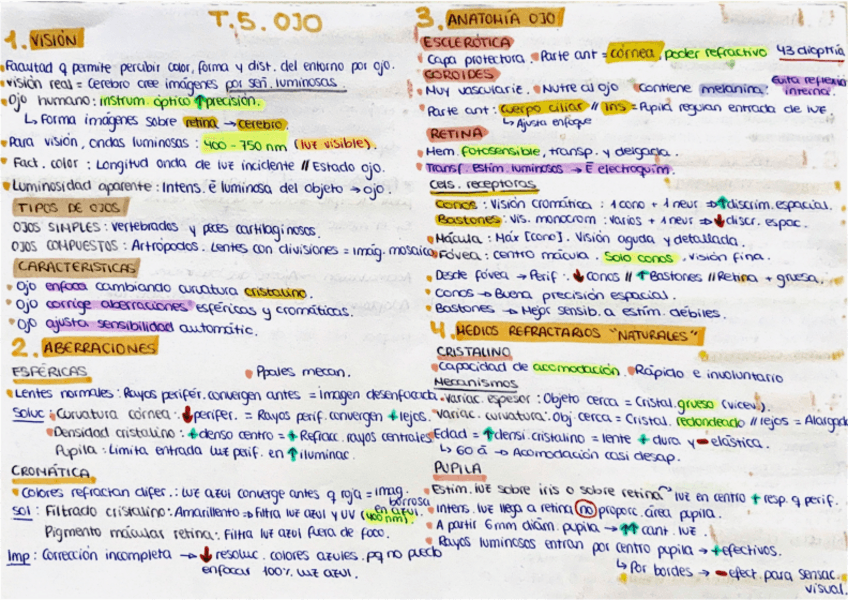 T.5. OJO
1. VISIÓN
Facultad q permite percibir color, forma y dist. del entorno por ojo.
visión real = Cerebro cree imágenes por señ. luminosas.
Ojo humano: instrum. óptico ↑precisión.
↳ Forma imágenes sobre retina → cerebro
Para visión, ondas luminosas: 400 - 750 nm (luz visible).
Fact. color: Longitud onda de luz incidente // Estado ojo.
Luminosidad aparente: Intens. Ē luminosa del objeto → ojo.
TIPOS DE OJOS
OJOS SIMPLES: vertebrados y peces cartilaginosos.
OJOS COMPUESTOS: Artrópodos. Lentes con divisiones = imág. mosaico
CARACTERISTICAS
Ojo enfoca cambiando curvatura cristalino.
Ojo corrige aberraciones esféricas y cromáticas.
Ojo ajusta sensibilidad automátic.
2. ABERRACIONES
ESFÉRICAS
Ppales mecan.
Lentes normales: Rayos perifér. convergen antes = imagen desenfocada.
soluc: Curvatura córnea: ↓perifer. = Rayos perif. convergen + lejos.
Densidad cristalino: + denso centro = + Refrac. rayos centrales
Pupila: Limita entrada luz perif. en ↑iluminac.
CROMÁTICA
Colores refractan difer.: luz azul converge antes q roja = imag. borrosa en azul.
sol: Filtrado cristalino: Amarillento → Filtra luz azul y UV (400 nm).
Pigmento macular retina: Filtra luz azul fuera de foco.
Imp: Corrección incompleta → ↓ resoluc. colores azules. pq no puedo
enfocar 100% luz azul.
3. ANATOMÍA OJO
ESCLERÓTICA
Capa protectora. Parte ant = córnea, poder refractivo 43 dioptría
COROIDES
Muy vasculariz. Nutre al ojo Contiene melanina. Evita reflexión interna.
Parte ant: cuerpo ciliar // Iris = Pupila regulan entrada de luz.
↳ Ajusta enfoque
RETINA
Mem. fotosensible, transp. y delgada.
Transf. estim. luminosos → Ē electroquím.
Cels. receptoras
Conos: Visión cromática: 1 cono + 1 neur ⇒ ↑discrim. espacial.
Bastones: Vis. monocrom: varios + 1 neur ⇒ ↓discr. espac.
Mácula: Máx [cono]. Visión aguda y detallada.
Fóvea: centro mácula. Solo conos. visión fina.
Desde fóvea → Perif: ↓ conos // ↑ Bastones // Retina + gruesa.
Conos → Buena precisión espacial.
Bastones → Mejor sensib. a estim. débiles.
4. MEDIOS REFRACTARIOS "NATURALES"
CRISTALINO
Capacidad de acomodación. Rápido e involuntario
Mecanismos
variac. espesor: Objeto cerca = Cristal. grueso (vicev.).
variac. curvatura: Obj. cerca = Cristal. redondeado // lejos = Alargado
Edad = ↑densi. cristalino = lente + dura y - elástica.
↳ 60 a → Acomodación casi desap.
PUPILA
Estim. luz sobre iris o sobre retina ~ luz en centro + resp. q perif.
Intens. luz llega a retina no proporc. área pupila.
A partir 6mm diám. pupila → ↑↑ cant. luz.
Rayos luminosos entran por centro pupila → + efectivos.
↳ Por bordes → - efect. para sensac. visual.